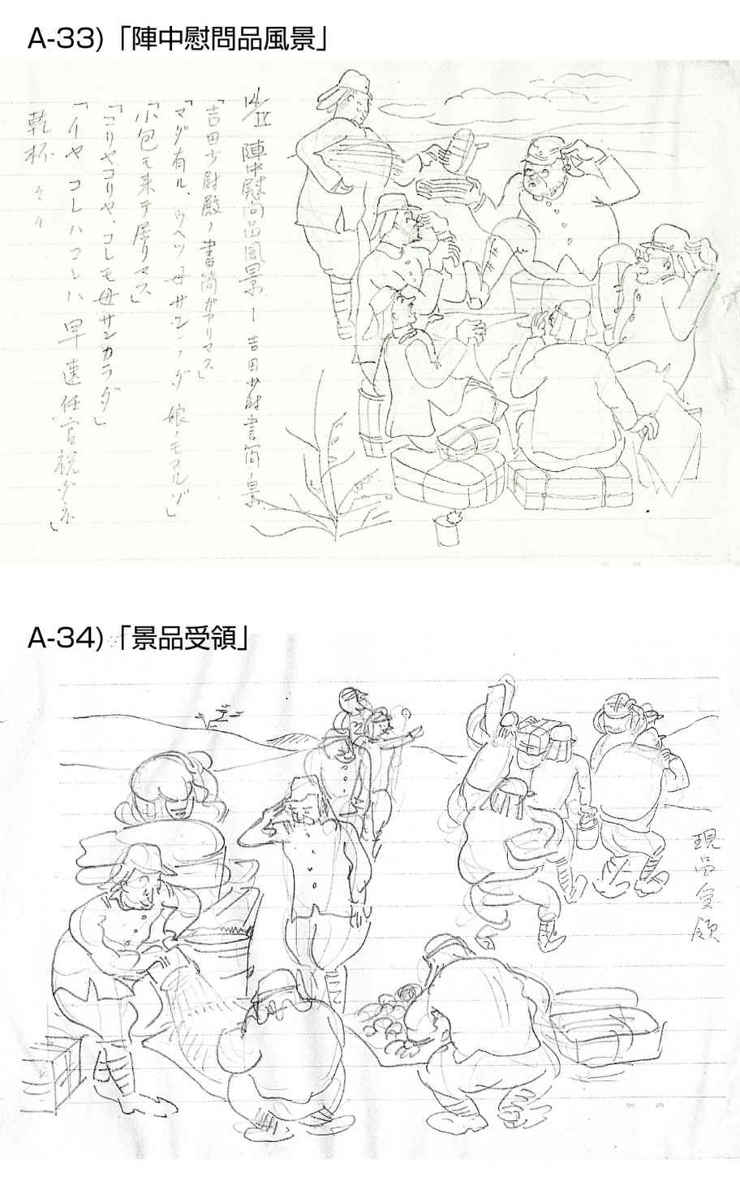 A-33)「陣中慰問品風景」
陣中慰問品風景ー吉田少尉書簡ノ景
「吉田少尉殿ノ書簡ガアリマス」
「マダ有ル、 母サン 娘ノモアルゾ」
「小包モ来テ居リマス」
「コリヤコリヤ、コレモ母サンカラダ」
「イヤコレハコレハ早速任官祝ダネ」
乾杯々々
A-34)「景品受領」
現品受領